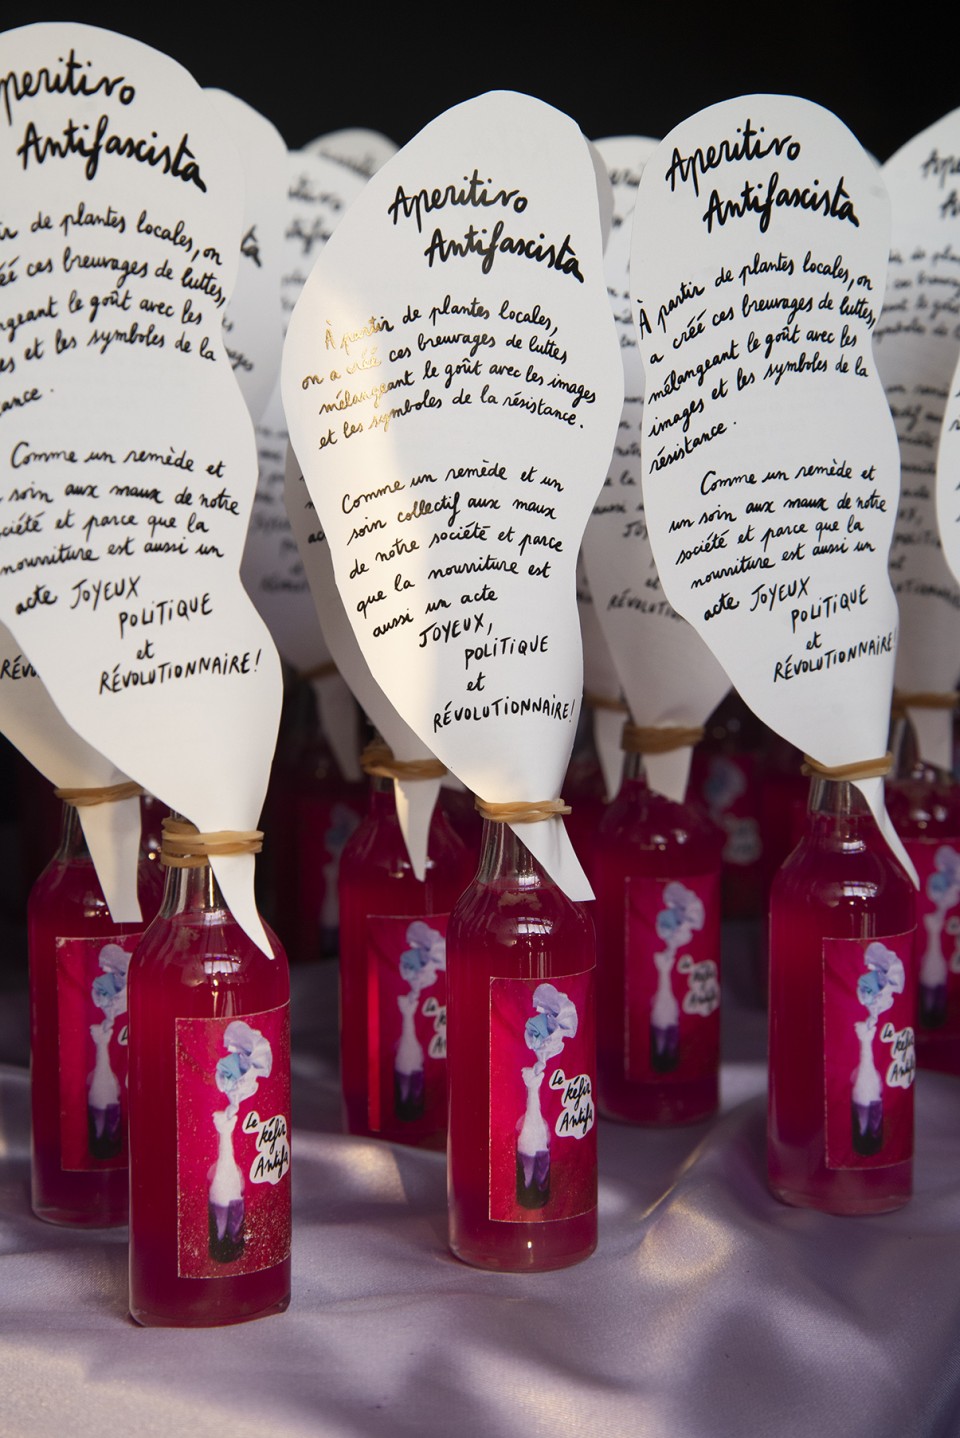 Aperitivo
Antifascista
de plantes locales, on
ces breuvages de luttes,
le goût avec les
et les symboles de la
Comme un remède et
soin aux maux de notre
et parce que la
nourriture est aussi un
acte JOYEUX
POLITIQUE
et
RÉVOLUTIONNAIRE!
Le
kéfir
Antifa
Aperitivo
Antifascista
À partir de plantes locales,
on a créé ces breuvages de luttes
mélangeant le goût avec les images
et les symboles de la résistance.
Comme un remède et un
soin collectif aux maux
de notre société et parce
que la nourriture est
aussi un acte
JOYEUX,
POLITIQUE
et
RÉVOLUTIONNAIRE!
Le
kéfir
Antifa
Aperitivo
Antifascista
À partir de plantes locales, on
a créé ces breuvages de luttes,
mélangeant le goût avec les
images et les symboles de la
résistance.
Comme un remède et
un soin aux maux de notre
société et parce que la
nourriture est aussi un
acte JOYEUX
POLITIQUE
et
RÉVOLUTIONNAIRE!
Le
kéfir
Antifa